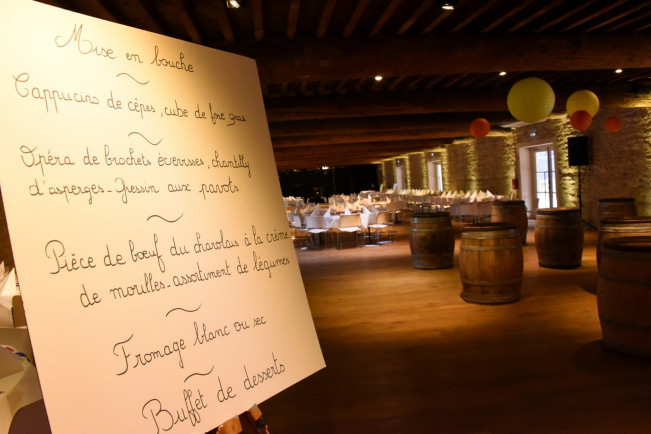 Mise en bouche
Cappucino de cêpes, cube de foie gras
Opéra de brochets écrevisses, chantilly
d'asperges-Gressin aux pavots
Pièce de bœuf du charolais à la crème
de morilles-assortiment de légumes
Fromage blanc ou sec
Buffet de desserts